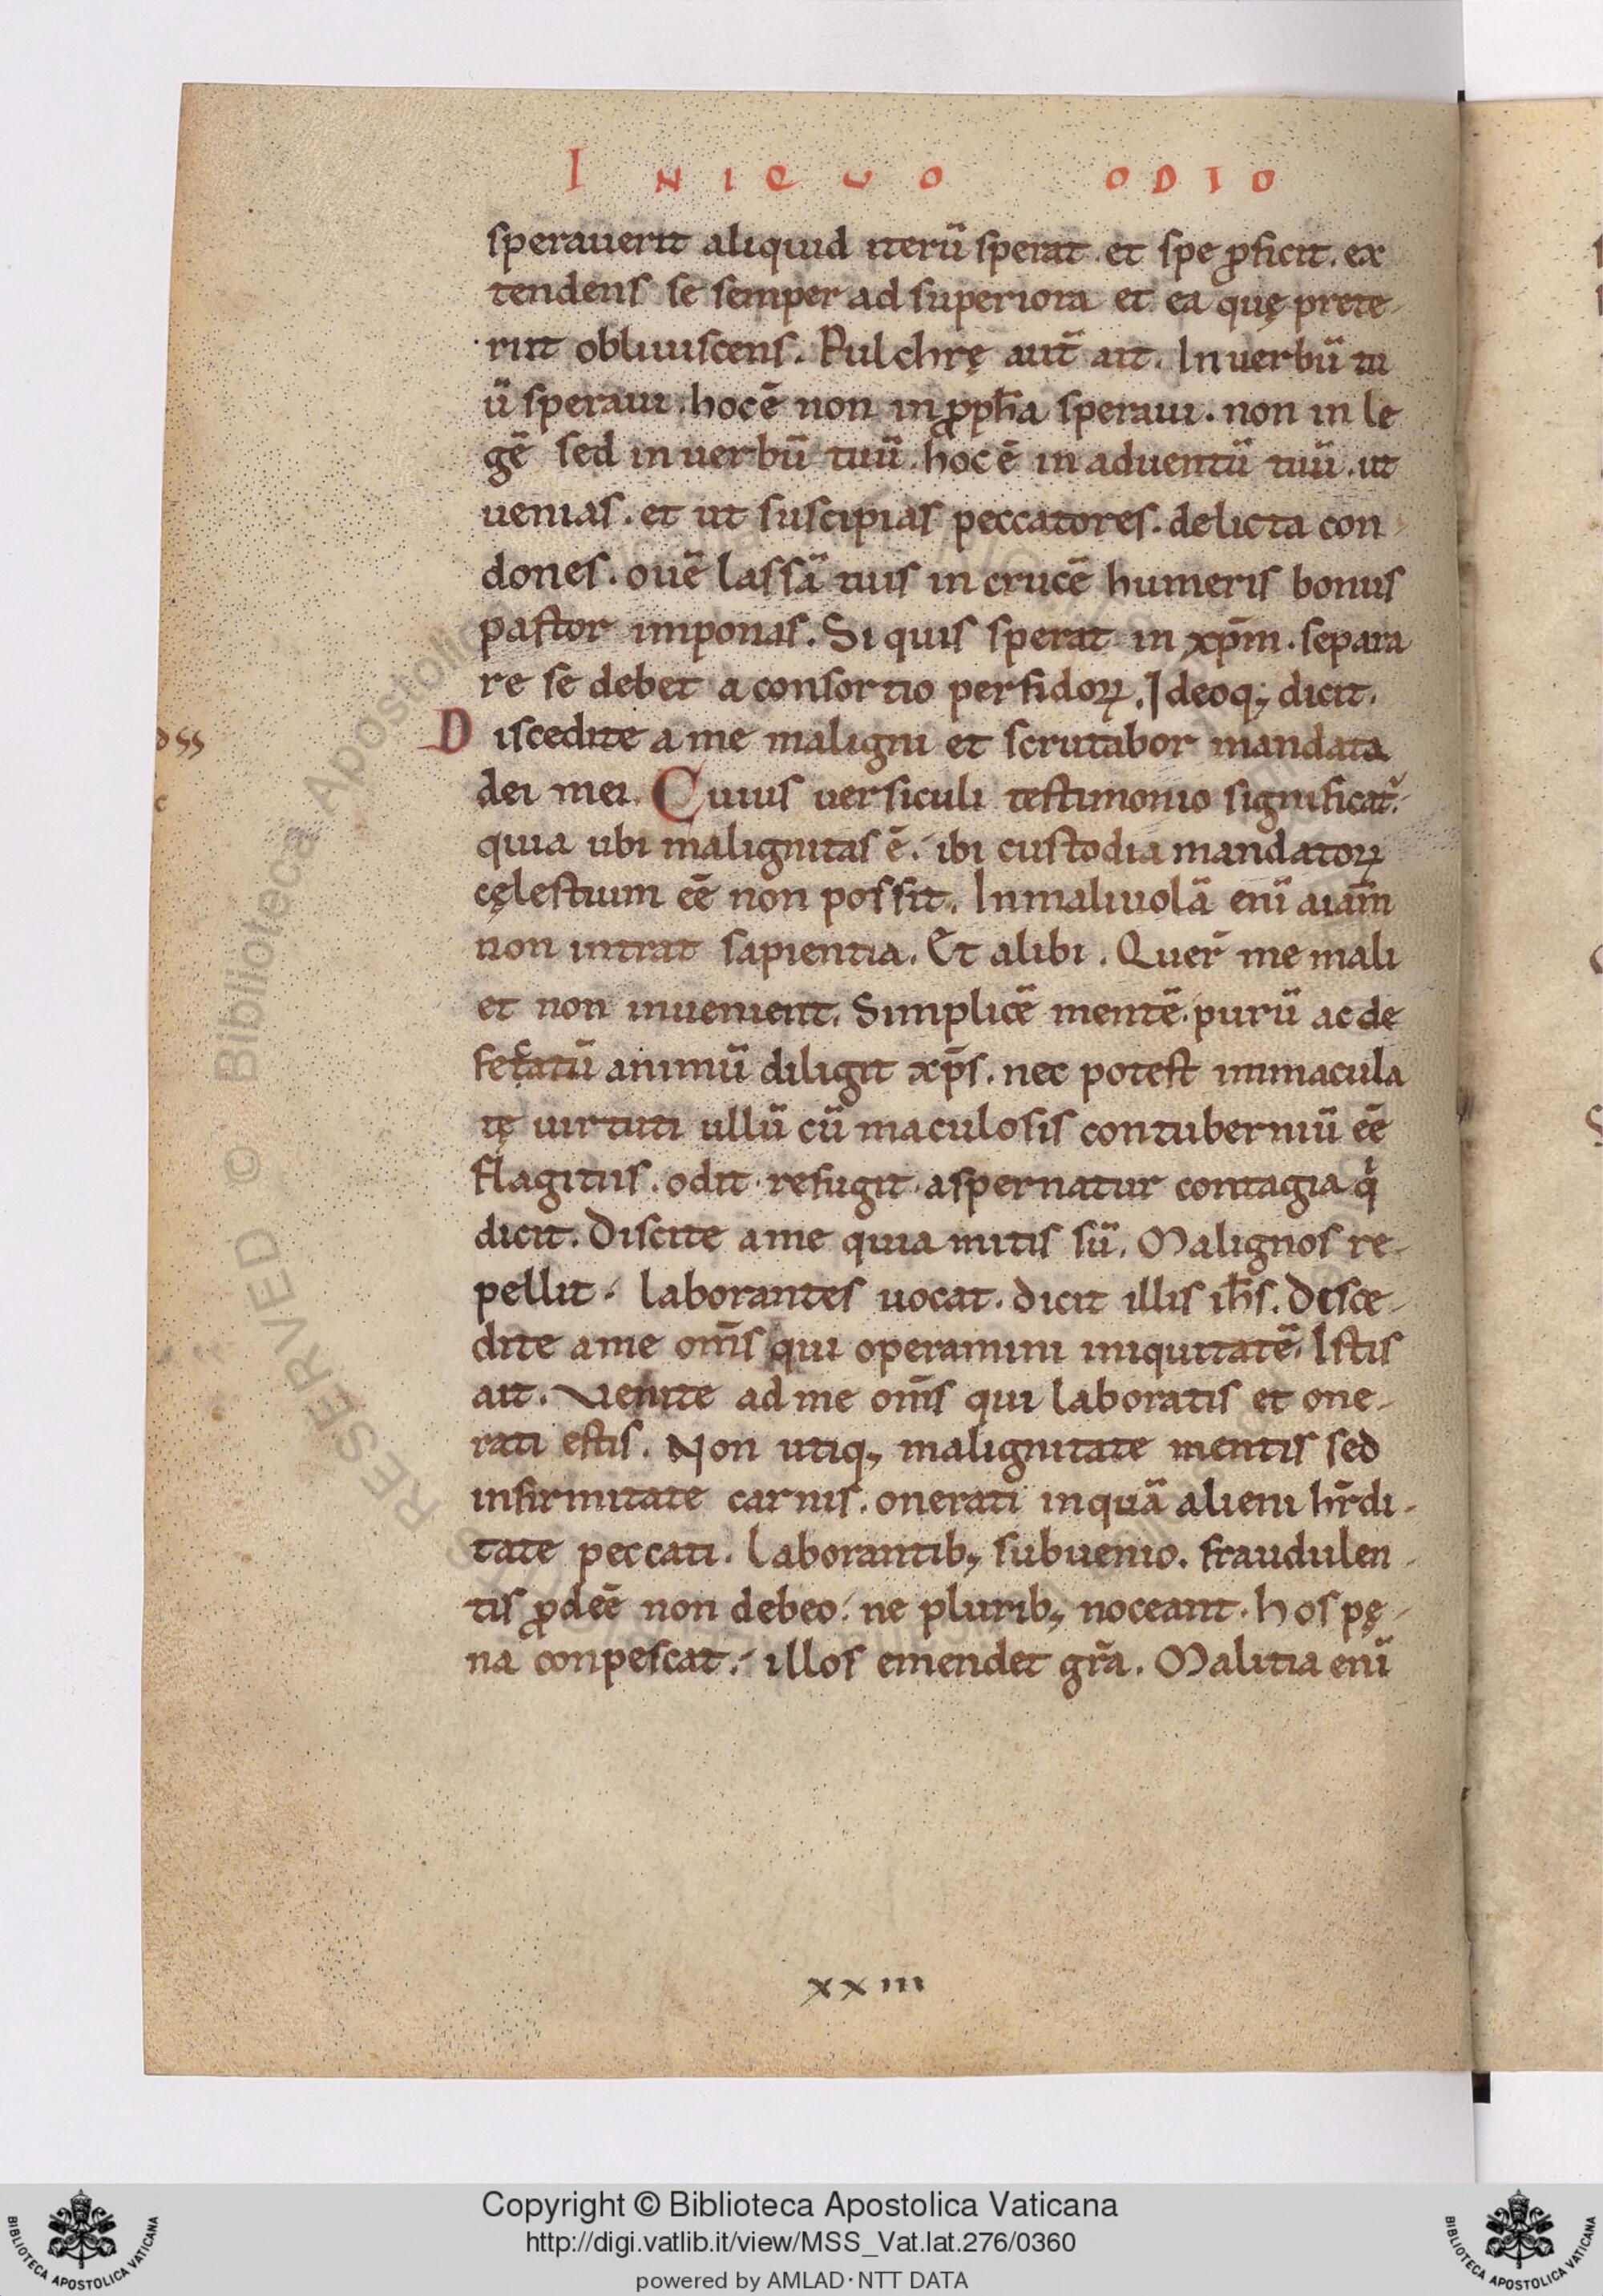 INIQUO ODIO
sperauerit aliquid iterū sperat. et spe ꝓficit. ex
tendens se semper ad superiora et ea quę prete-
riit obliuiscens. Pulchrę aut̄ ait. In uerbū tu
ū speraui. hoc ē non in ꝓph̄a speraui. non in le
gē sed in uerbū tuū. hoc ē in aduentū tuū. ut
uenias. et ut suscipias peccatores. delicta con-
dones. ouē lassā tuis in crucē humeris bonus
pastor imponas. Si quis sperat in xp̄m. separa
re se debet a consortio perfidoꝝ. Ideoq; dicit.
DSS
Discedite a me maligni et scrutabor mandata
dei mei. Cuius uersiculi testimonio significat̄.
quia ubi malignitas ē. ibi custodia mandatoꝝ
cęlestium eē non possit. In maliuolā enī aiām
non intrat sapientia. Et alibi. Quer̄ me mali
et non inuenient. Simplicē mentē. purū ac de
fecatū animū diligit xp̄s. nec potest immacula
tę uirtuti ullū cū maculosis contuberniū eē
flagitiis. odit. refugit. aspernatur contagia q
dicit. Discite a me quia mitis sū. Malignos re-
pellit. laborantes uocat. dicit illis ih̄s. Disce-
dite a me om̄s qui operamini iniquitatē. Istis
ait. Venite ad me om̄s qui laboratis et one-
rati estis. Non utiq; malignitate mentis sed
infirmitate carnis. onerati inquā alieni hr̄di-
tate peccati. Laborantib; subuenio. fraudulen-
tis ꝓdeē non debeo. ne plurib; noceant. hos pę-
na conpescat. illos emendet gr̄a. Malitia enī
xxiii
Copyright © Biblioteca Apostolica Vaticana
http://digi.vatlib.it/view/MSS_Vat.lat.276/0360
powered by AMLAD·NTT DATA
BIBLIOTECA APOSTOLICA VATICANA
BIBLIOTECA APOSTOLICA VATICANA